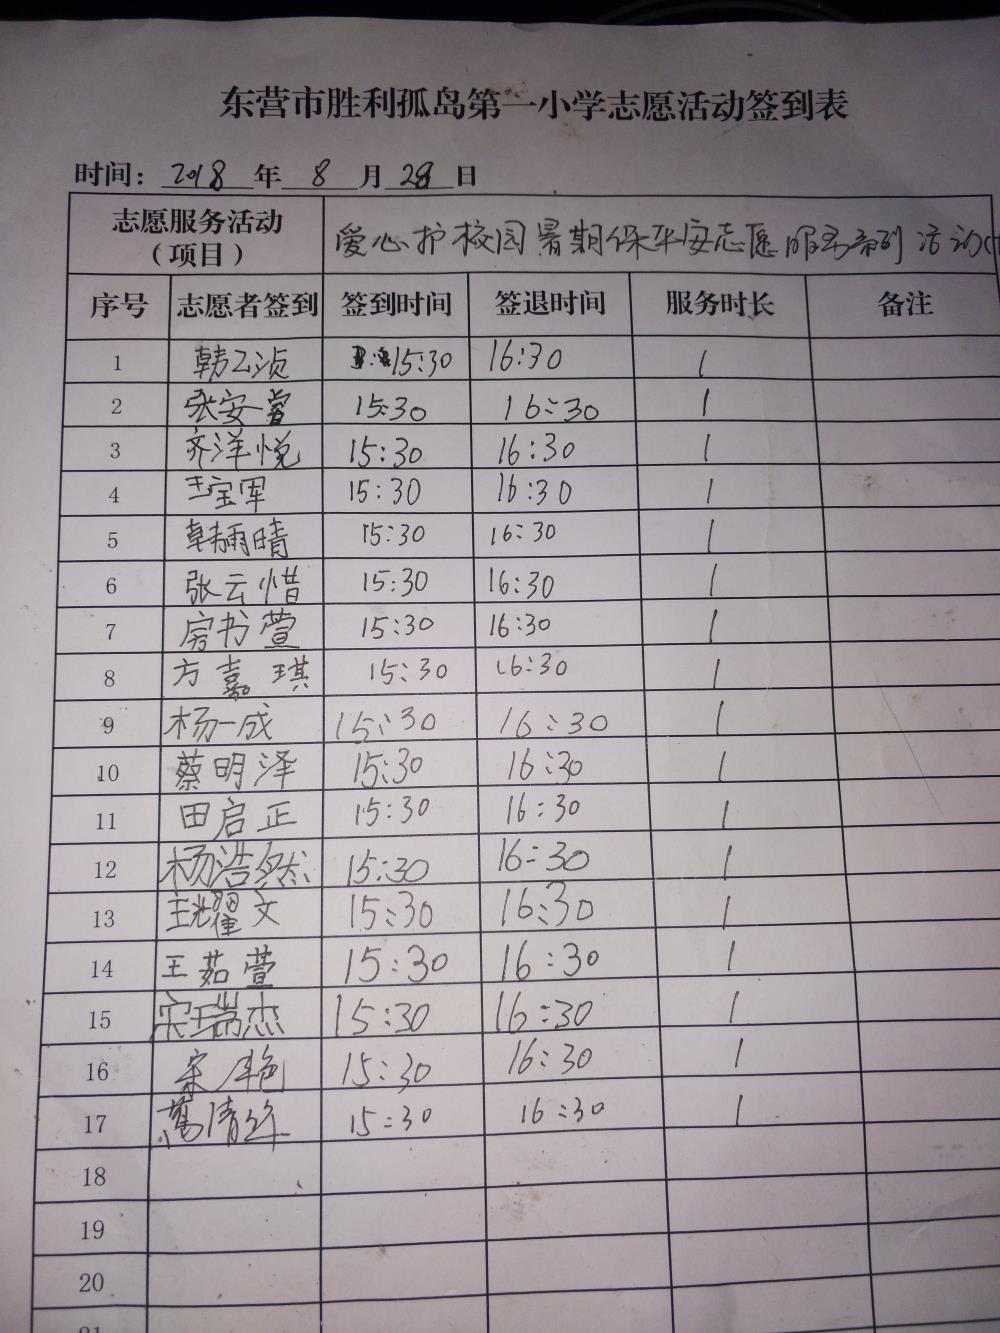 东营市胜利孤岛第一小学志愿活动签到表
时间：2018年8月28日
志愿服务活动（项目） 爱心护校园暑期保平安志愿服务系列活动
序号 志愿者签到 签到时间 签退时间 服务时长 备注
1 韩 15:30 16:30 1
2 张安 15:30 16:30 1
3 齐洋悦 15:30 16:30 1
4 王宝军 15:30 16:30 1
5 韩雨晴 15:30 16:30 1
6 张云惜 15:30 16:30 1
7 房书萱 15:30 16:30 1
8 方嘉琪 15:30 16:30 1
9 杨一成 15:30 16:30 1
10 蔡明泽 15:30 16:30 1
11 田启正 15:30 16:30 1
12 杨浩然 15:30 16:30 1
13 王耀文 15:30 16:30 1
14 王茹萱 15:30 16:30 1
15 宋瑞杰 15:30 16:30 1
16 宋艳 15:30 16:30 1
17 15:30 16:30 1
18
19
20
21